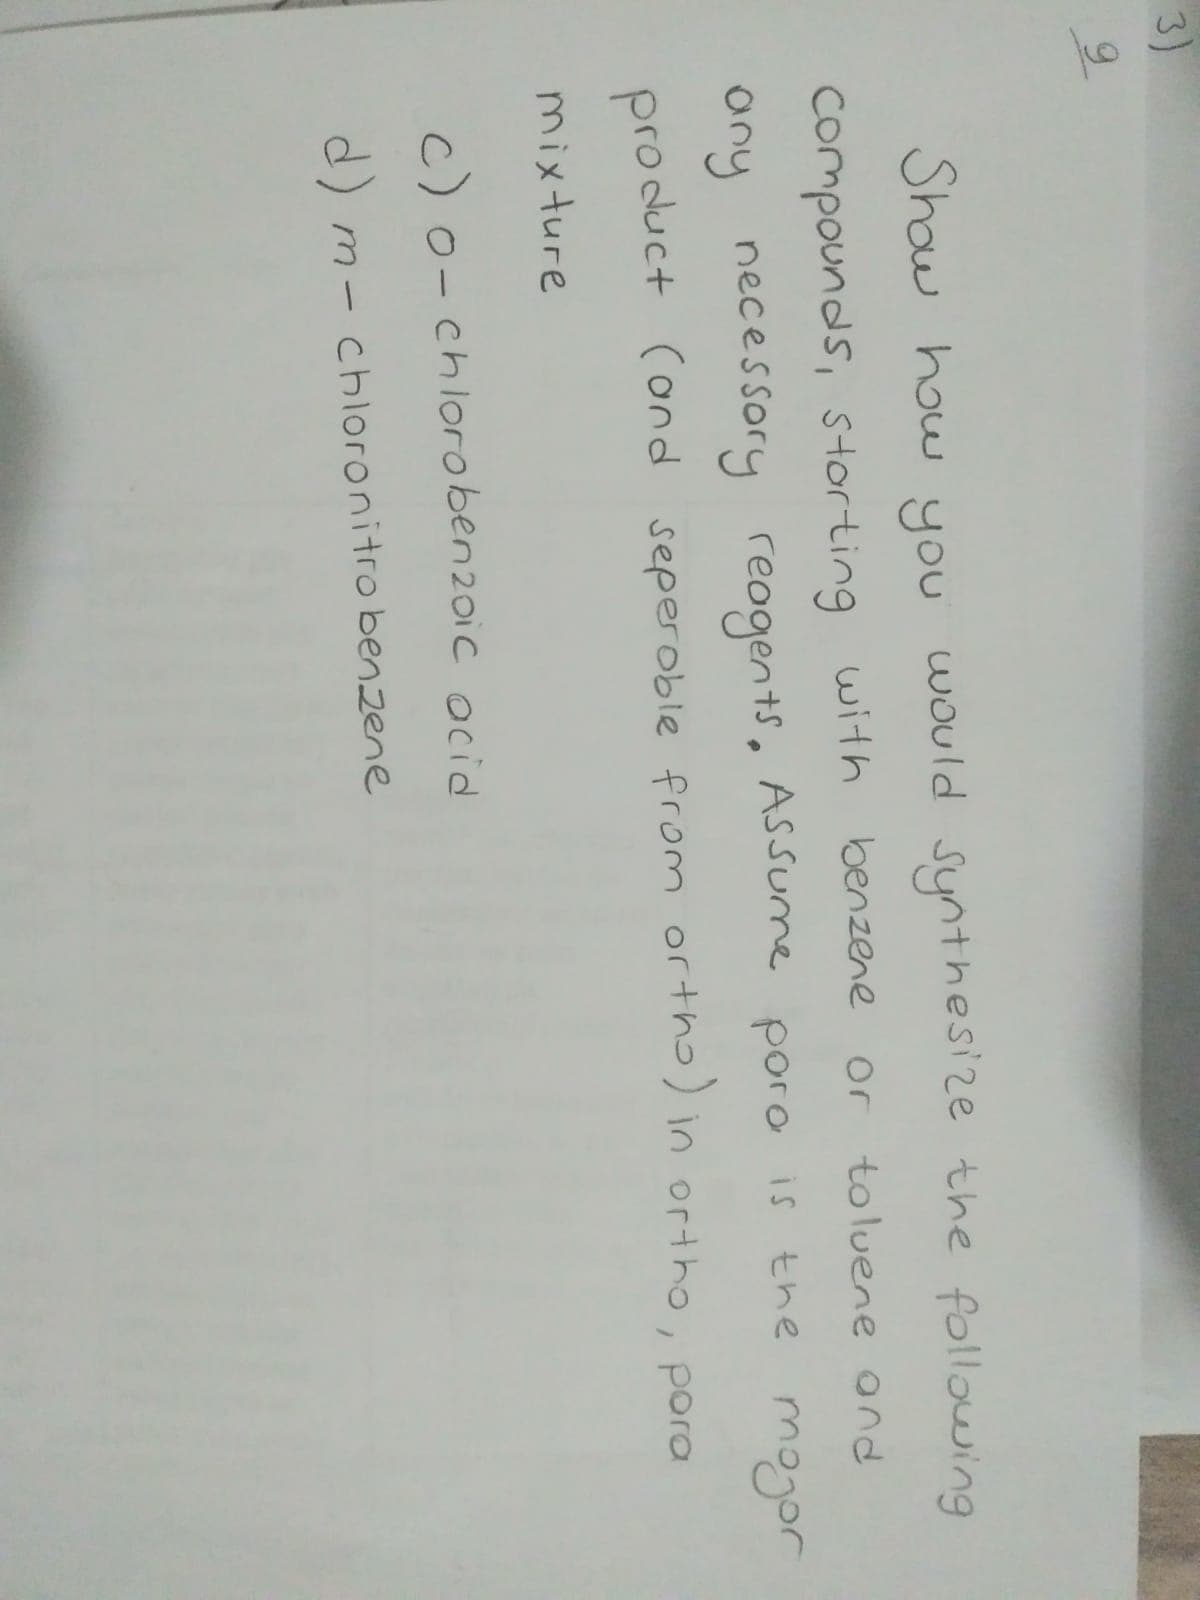 3)
9
Show how you would synthesize the following
compounds, starting with benzene or toluene and
any necessary reagents. Assume para is the major
product (and seperable from ortho) in ortho, para
mixture
c) o-chlorobenzoic acid
d) m-chloronitrobenzene